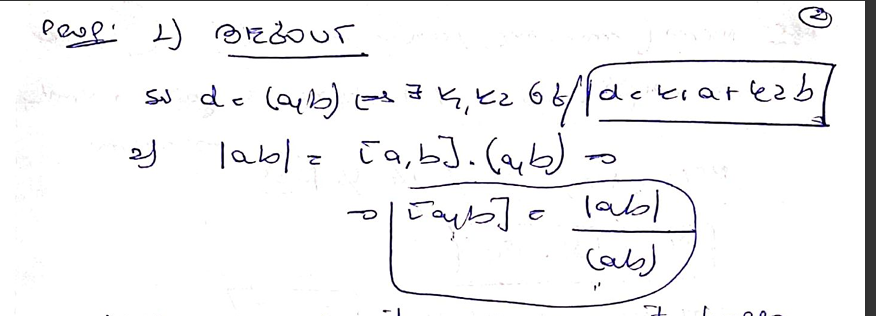 ②
Prop: 1) BEZOUT
si d = (a,b) ⇒ ∃ k1, k2 ∈ ℤ / d = k1 a + k2 b
2) |ab| = [a,b]·(a,b) →
→ [a,b] = |ab| / (a,b)